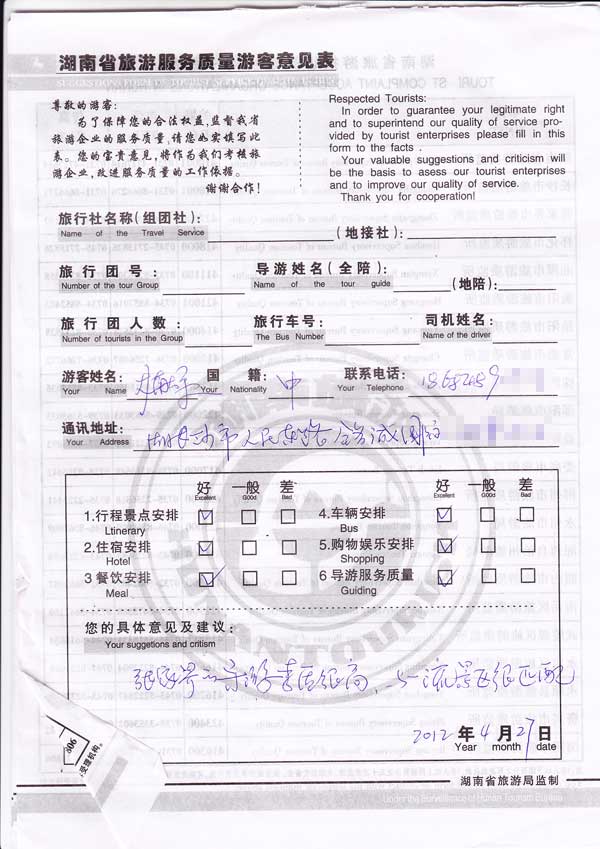 湖南省旅游服务质量游客意见表
尊敬的游客:
为了保障您的合法权益,监督我省
旅游企业的服务质量,请您如实填写此
表。您的宝贵意见,将作为我们考核旅
游企业,改进服务质量的工作依据。
谢谢合作!
Respected Tourists:
In order to guarantee your legitimate right
and to superintend our quality of service pro-
vided by tourist enterprises please fill in this
form to the facts .
Your valuable suggestions and criticism will
be the basis to asess our tourist enterprises
and to improve our quality of service.
Thank you for cooperation!
旅行社名称(组团社): (地接社):
Name of the Travel Service
旅行团号: 导游姓名(全陪) (地陪):
Number of the tour Group Name of the tour guide
旅行团人数: 旅行车号: 司机姓名:
Number of tourists in the Group The Bus Number Name of the driver
游客姓名: 国籍: 中 联系电话:
Your Name Your Nationality Your Telephone
通讯地址: 市人民东路
Your Address
好 一般 差 好 一般 差
Excellent Good Bad Excellent Good Bad
1.行程景点安排 4.车辆安排
Ltinerary Bus
2.住宿安排 5.购物娱乐安排
Hotel Shopping
3 餐饮安排 6 导游服务质量
Meal Guiding
您的具体意见及建议:
Your suttgetions and critism
张家界的导游素质很高,与一流景区很匹配
2012 年 4 月 27 日
Year month date
806
受理机构。
湖南省旅游局监制
Under the Surveillance of Hunan Tourism Bureau